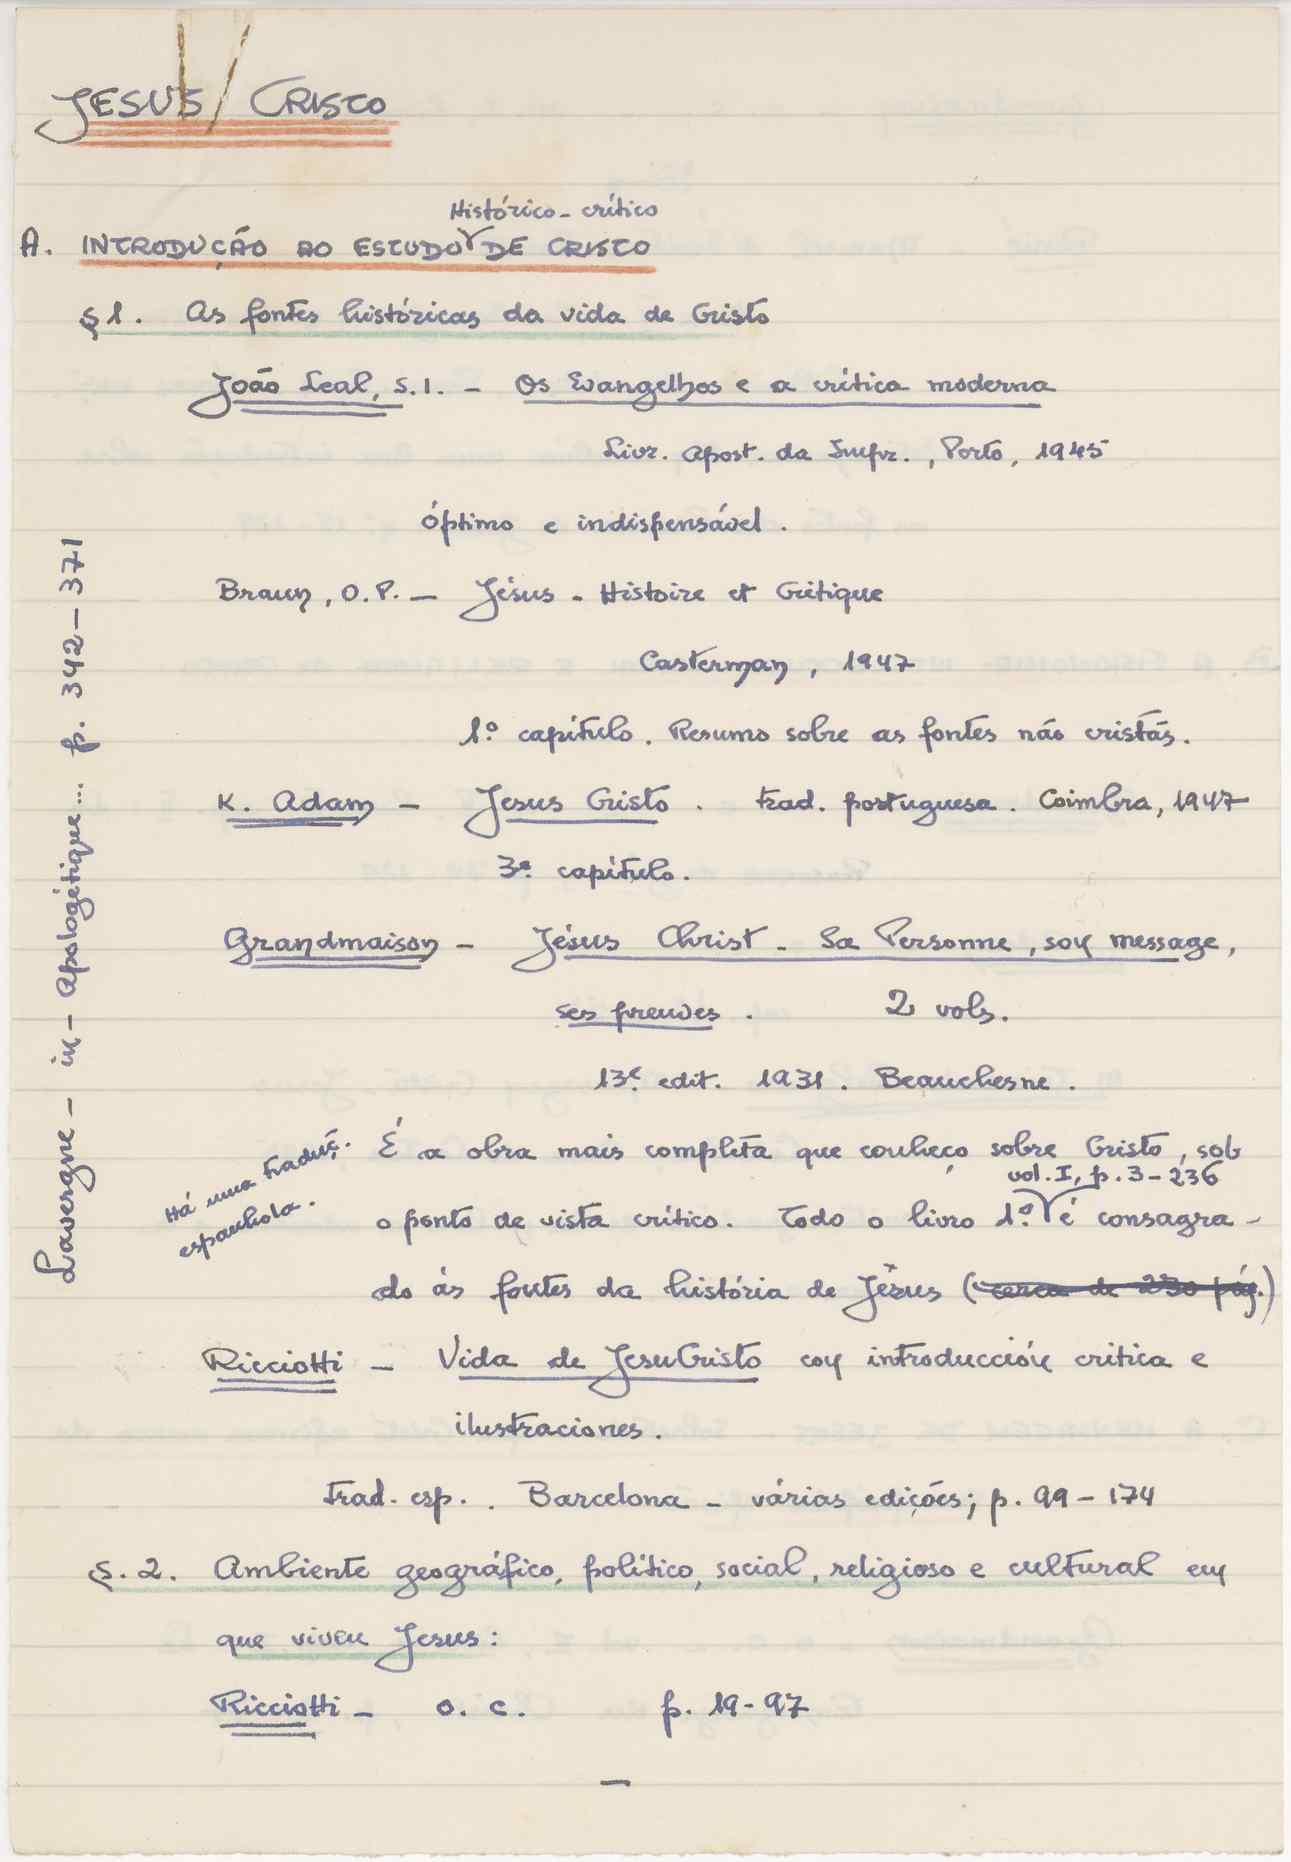 JESUS CRISTO
Histórico-crítico
A. INTRODUÇÃO AO ESTUDO DE CRISTO
§1. As fontes históricas da vida de Cristo
João Leal, S.I. - Os Evangelhos e a crítica moderna
Livr. Apost. da Impr., Porto, 1945
óptimo e indispensável.
Braun, O.P. - Jésus - Histoire et Critique
Casterman, 1947
1º capítulo. Resumo sobre as fontes não cristãs.
K. Adam - Jesus Cristo. trad. portuguesa. Coimbra, 1947
3º capítulo.
Grandmaison - Jésus Christ - Sa Personne, son message,
ses preuves. 2 vols.
13ª edit. 1931. Beauchesne.
É a obra mais completa que conheço sobre Cristo, sob
vol. I, p. 3-236
o ponto de vista crítico. Todo o livro 1º é consagra-
do às fontes da história de Jesus (cerca de 230 pág.)
Há uma traduç.
espanhola.
Ricciotti - Vida de JesuCristo con introducción critica e
ilustraciones.
trad. esp.. Barcelona - várias edições; p. 99-174
§.2. Ambiente geográfico, político, social, religioso e cultural em
que viveu Jesus:
Ricciotti - o. c. p. 19-97
Lavergne - in - Apologétique... p. 342-371